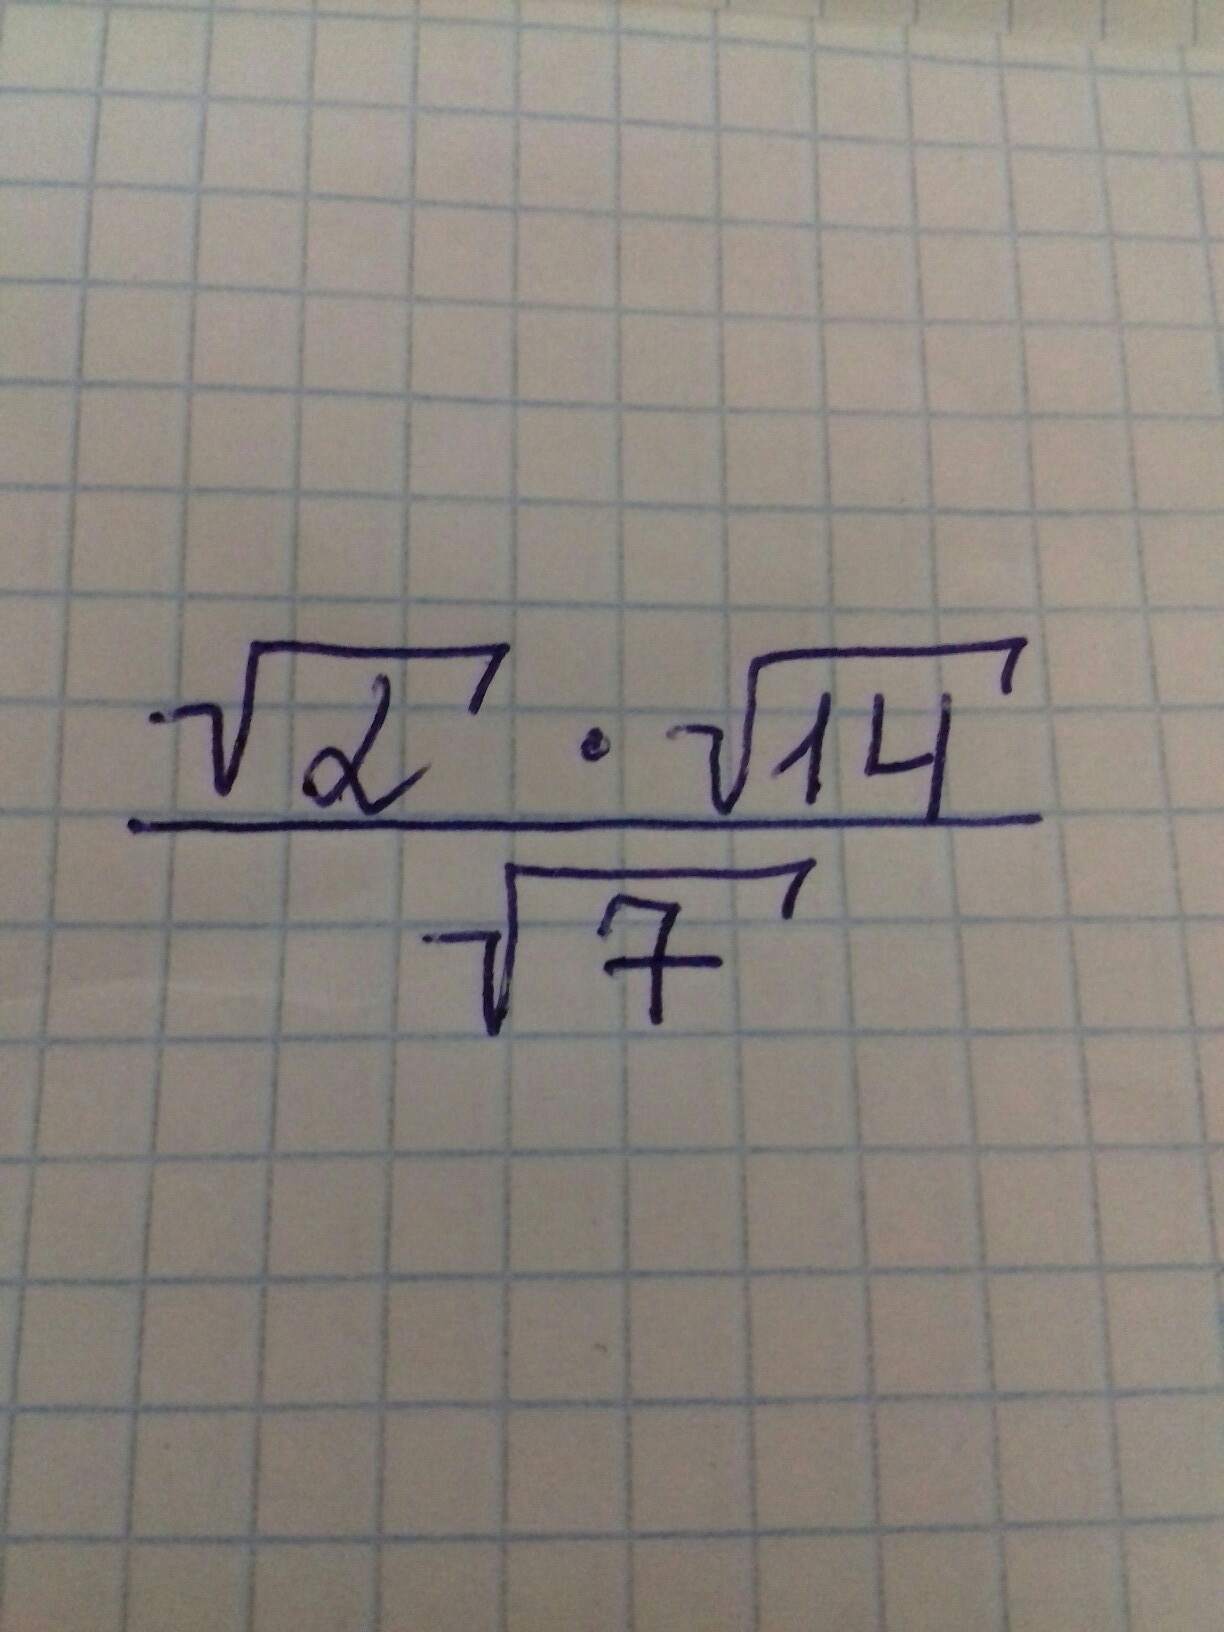 √2 · √14
√7